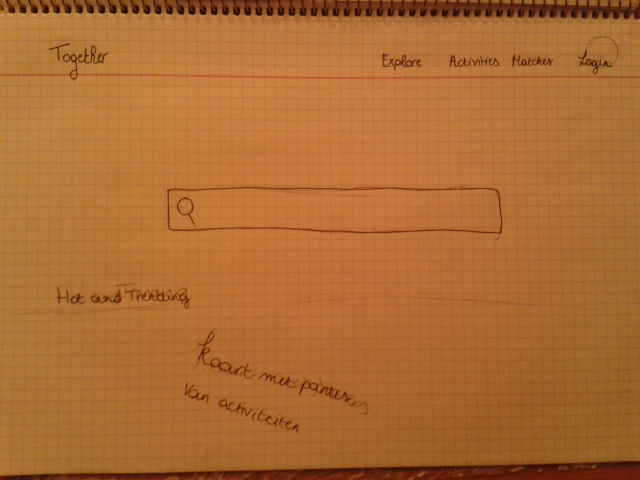 Together
Explore Activities Matches Login
Hot and Trending
Kaart met pointers
van activiteiten